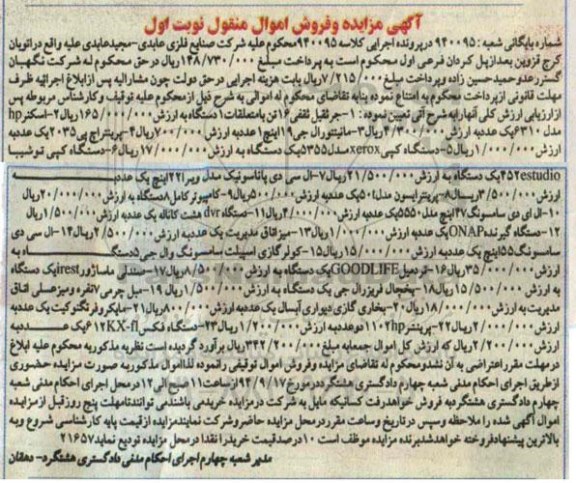 آگهی مزایده وفروش اموال منقول نوبت اول
شماره بایگانی شعبه : ۹۴۰۰۹۵ درپرونده اجرایی کلاسه ۹۴۰۰۹۵محکوم علیه شرکت صنایع فلزی عابدی-مجیدعابدی علیه واقع دراتوبان
کرج قزوین بعدازپل کردان فرعی اول محکوم است به پرداخت مبلغ ۱۴۸/۷۳۰/۰۰۰ریال درحق محکوم له شرکت نگهبان
گستررعدوحمیدحسین زاده وپرداخت مبلغ ۷/۲۱۵/۰۰۰ریال بابت هزینه اجرایی درحق دولت چون مشارالیه پس ازابلاغ اجرائیه ظرف
مهلت قانونی ازپرداخت محکوم به امتناع نموده بنابه تقاضای محکوم له اموالی به شرح ذیل ازمحکوم علیه توقیف وکارشناس مربوطه پس
ازارزیابی ارزش کلی آنهارابه شرح آتی تعیین نموده : ۱-جرثقیل ثقفی ۱۶تن بامتعلقات۱دستگاه به ارزش ۱۶۵/۰۰۰/۰۰۰ریال۲-اسکنرhp
مدل ۶۳۱۰یک عددبه ارزش ۴/۳۰۰/۰۰۰ریال۳-مانیتورال جی۱۹اینچ۱عددبه ارزش ۷۰۰/۰۰۰ریال۴-پرینتراچ پی۲۰۳۵یک عددبه
ارزش ۱/۰۰۰/۰۰۰ریال۵-دستگاه کپی xeroxمدل۵۳۵۵یک دستگاه به ارزش ۱۷/۰۰۰/۰۰۰ریال۶-دستگاه کپی توشیبا
۴۵۲estudioیک دستگاه به ارزش ۲۱/۵۰۰/۰۰۰ریال۷-ال سی دی پاناسونیک مدل ویرا۲۲اینچ یک عددبه
ارزش۳/۵۰۰/۰۰۰ریسال۸-پرینترایسون مدل۵۰یک عددبه ارزش ۵۰۰/۰۰۰ریال۹-کامپیوترکامل۸دستگاه به ارزش۲۰/۰۰۰/۰۰۰ریال
۱۰-ال ای دی سامسونگ۴۷اینچ مدل۵۵۵۰یک عددبه ارزش۴/۰۰۰/۰۰۰ریال۱۱-دستگاهdvr هشت کاناله یک عددبه ارزش۱/۵۰۰/۰۰۰ریال
۱۲-دستگاه گیرندهONAPیک عددبه ارزش ۱/۰۰۰/۰۰۰ریال۱۳-میزاتاق مدیریت یک عددبه ارزش ۲/۵۰۰/۰۰۰ریال۱۴-ال سی دی
سامسونگ۵۵اینچ یک عددبه ارزش ۱۵/۰۰۰/۰۰۰ریال۱۵-کولرگازی اسپیلت سامسونگ وال جی۵دستگاه به
ارزش۳۵/۰۰۰/۰۰۰ریال۱۶-تردمیلGOODLIFEیک دستگاه به ارزش ۸/۵۰۰/۰۰۰ریال۱۷-صندلی ماساژورirestیک دستگاه
به ارزش ۱۵/۵۰۰/۰۰۰ریال۱۸-یخچال فریزرال جی یک دستگاه به ارزش ۱/۵۰۰/۰۰۰ریال ۱۹-مبل چرمی ۷نفره ومیزعسلی اتاق
مدیریت به ارزش ۱۸/۰۰۰/۰۰۰ریال۲۰-بخاری گازی دیواری آبسال یک عددبه ارزش۸۰۰/۰۰۰ریال۲۱-مایکروفرتکنوکیت یک عددبه
ارزش ۲/۰۰۰/۰۰۰ریال۲۲-پرینترhp۱۱۰۲دوعددبه ارزش۱/۲۰۰/۰۰۰ریال۲۳-دستگاه فکس۶۱۲KX-flیک عددبه
ارزش ۲/۲۰۰/۰۰۰ریال که ارزش کل اموال جمعابه مبلغ ۳۴۲/۲۰۰/۰۰۰ریال برآورد گردیده است نظریه مذکوربه محکوم علیه ابلاغ
درمهلت مقرراعتراضی به آن نشدومحکوم له تقاضای مزایده وفروش اموال توقیفی رانموده لذااموال مذکوربه صورت مزایده حضوری
ازطریق اجرای احکام مدنی شعبه چهارم دادگستری هشتگرددرمورخ۹۴/۹/۱۷ازساعت۱۱صبح الی۱۲درمحل اجرای احکام مدنی شعبه
چهارم دادگستری هشتگردبه فروش خواهدرفت کسانیکه مایل به شرکت درمزایده خریدمی باشندمی توانندتامهلت پنج روزقبل ازمزایده
اموال آگهی شده را ملاحظه وسپس درتاریخ وساعت مقرردرمحل مزایده حاضروشرکت نمایندمزایده ازقیمت پایه کارشناسی شروع وبه
بالاترین پیشنهادفروخته خواهدشدبرنده مزایده موظف است ۱۰درصدقیمت خریدرانقدا درمحل مزایده تودیع نماید۲۱۶۵۷
مدیر شعبه چهارم اجرای احکام مدنی دادگستری هشتگرد- دهقان